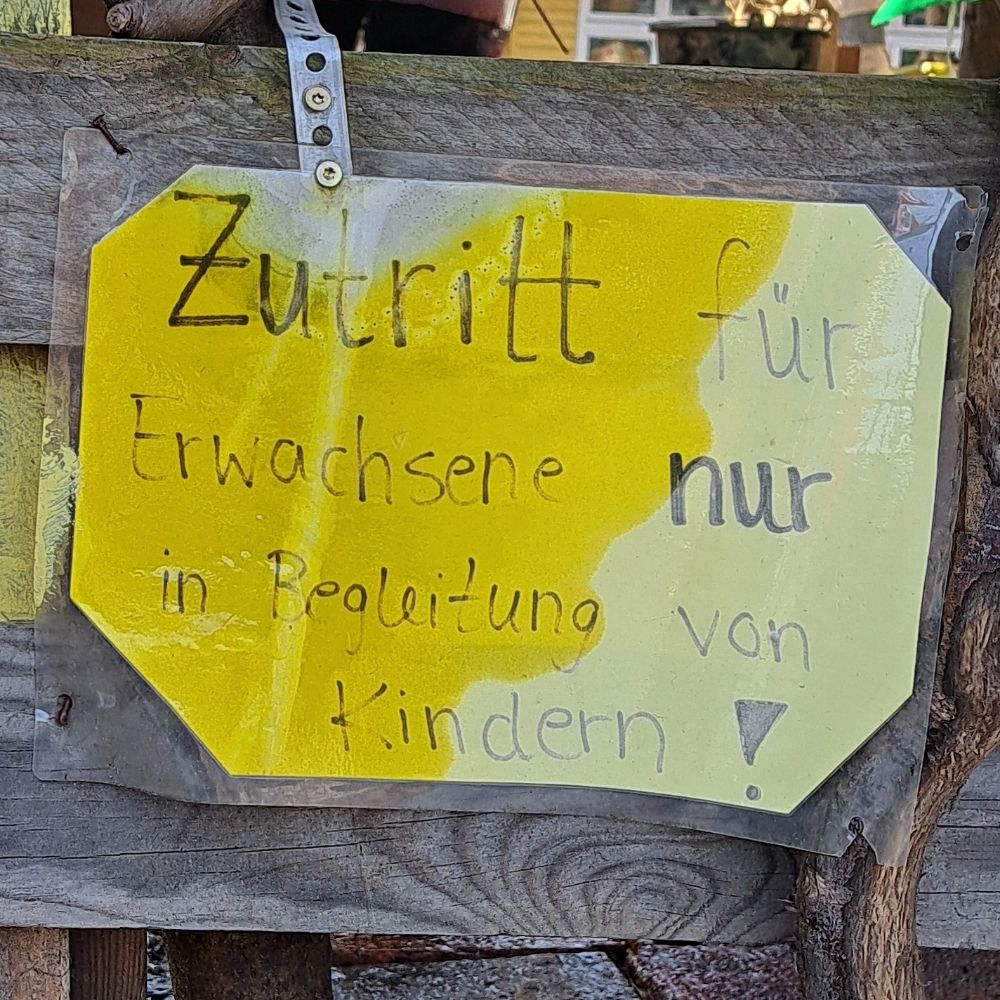 Zutritt für
Erwachsene nur
in Begleitung von
Kindern!